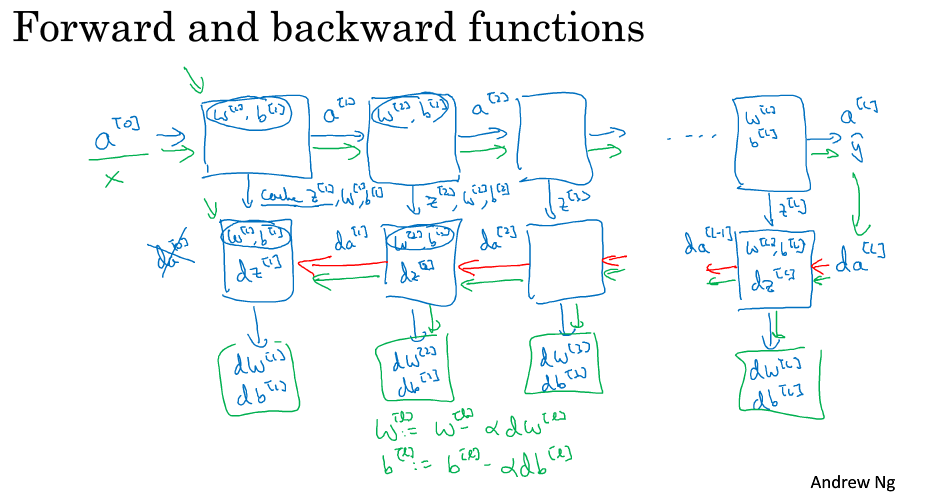 Forward and backward functions
a^[0]
x
w^[1], b^[1]
a^[1]
w^[2], b^[2]
a^[2]
w^[L]
b^[L]
a^[L]
ŷ
cache z^[1], w^[1], b^[1]
z^[2], w^[2], b^[2]
z^[3]
z^[L]
da^[0]
w^[1], b^[1]
dz^[1]
da^[1]
w^[2], b^[2]
dz^[2]
da^[2]
da^[L-1]
w^[L], b^[L]
dz^[L]
da^[L]
dw^[1]
db^[1]
dw^[2]
db^[2]
dw^[3]
db^[3]
dw^[L]
db^[L]
w^[l] := w^[l] - αdw^[l]
b^[l] := b^[l] - αdb^[l]
....
Andrew Ng